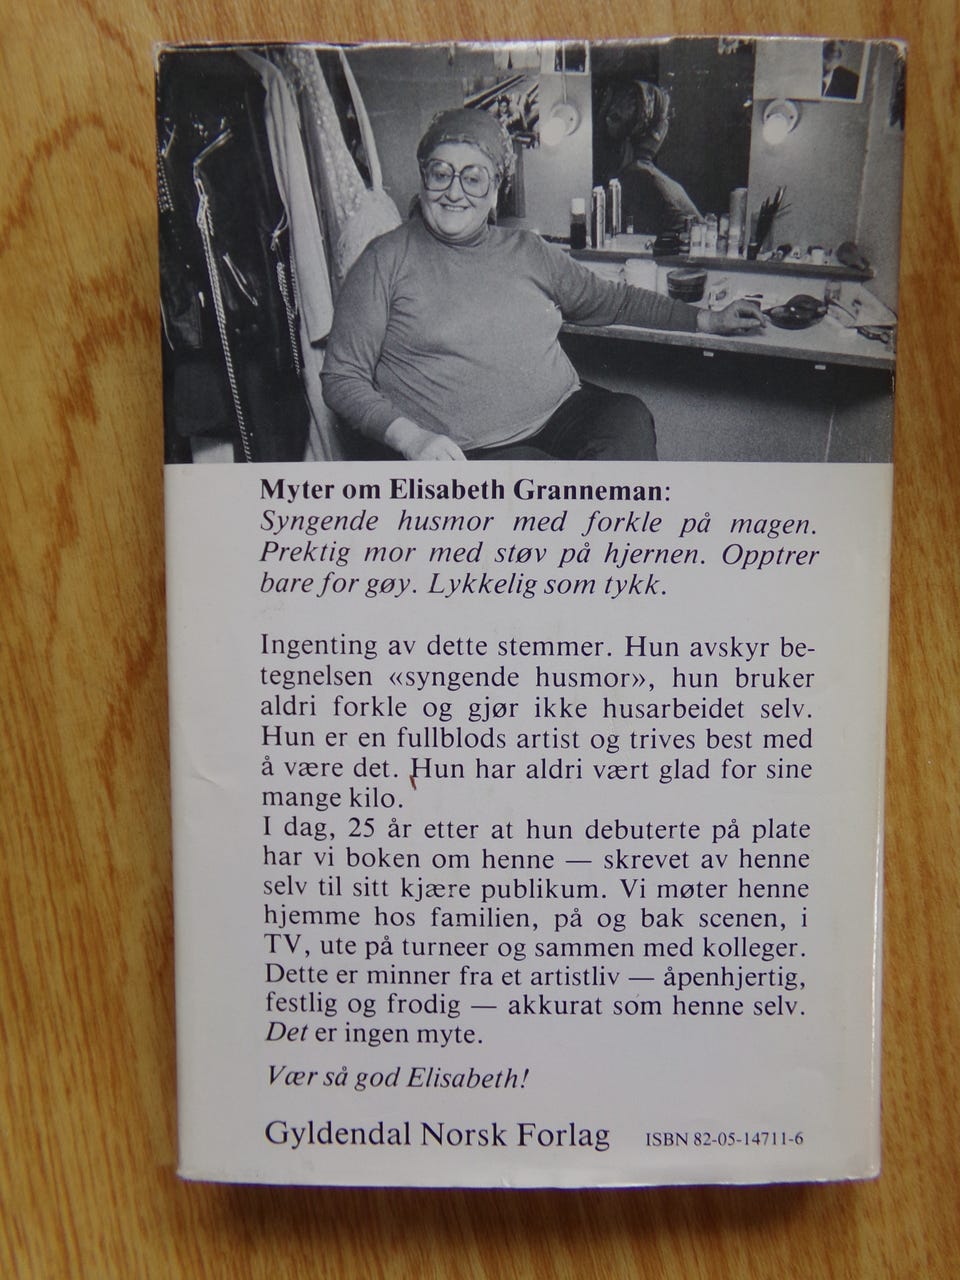 Myter om Elisabeth Granneman:
Syngende husmor med forkle på magen.
Prektig mor med støv på hjernen. Opptrer
bare for gøy. Lykkelig som tykk.
Ingenting av dette stemmer. Hun avskyr be-
tegnelsen «syngende husmor», hun bruker
aldri forkle og gjør ikke husarbeidet selv.
Hun er en fullblods artist og trives best med
å være det. Hun har aldri vært glad for sine
mange kilo.
I dag, 25 år etter at hun debuterte på plate
har vi boken om henne — skrevet av henne
selv til sitt kjære publikum. Vi møter henne
hjemme hos familien, på og bak scenen, i
TV, ute på turneer og sammen med kolleger.
Dette er minner fra et artistliv — åpenhjertig,
festlig og frodig — akkurat som henne selv.
Det er ingen myte.
Vær så god Elisabeth!
Gyldendal Norsk Forlag ISBN 82-05-14711-6